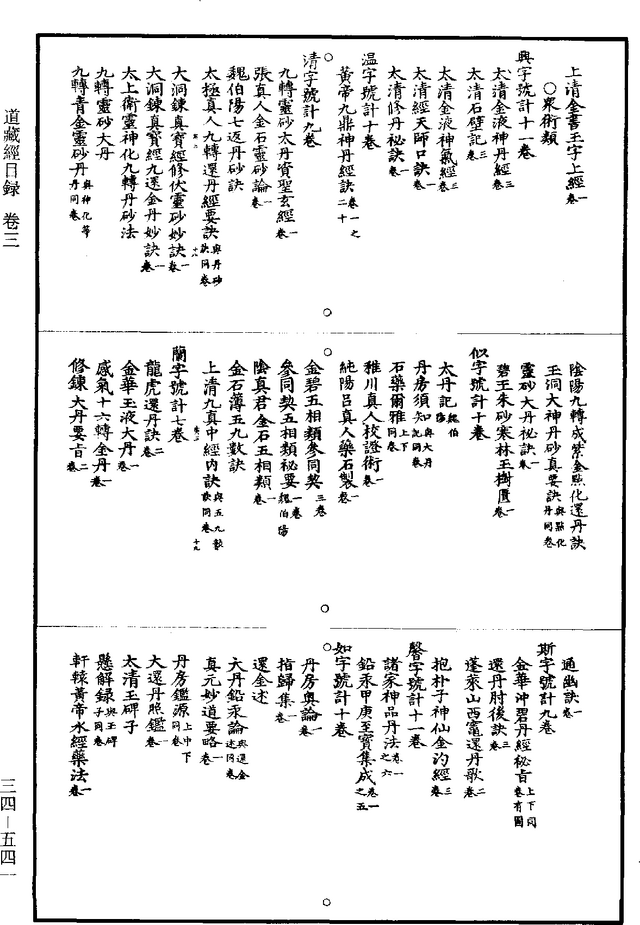 上清金書玉字上經一卷
○眾術類
興字號計十一卷
太清金液神丹經三卷
太清石壁記三卷
太清金液神氣經三卷
太清經天師口訣一卷
太清修丹秘訣一卷
溫字號計十卷
黃帝九鼎神丹經訣卷一之二十
清字號計九卷
九轉靈砂大丹資聖玄經一卷
張真人金石靈砂論一卷
魏伯陽七返丹砂訣
太極真人九轉還丹經要訣與丹砂訣同卷
大洞鍊真寶經修伏靈砂妙訣一卷
大洞鍊真寶經九還金丹妙訣一卷
太上衛靈神化九轉丹砂法
九轉靈砂大丹
九轉青金靈砂丹與神化等丹同卷
陰陽九轉成紫金點化還丹訣
玉洞大神丹砂真要訣與點化丹同卷
靈砂大丹祕訣一卷
碧玉朱砂寒林玉樹匱一卷
似字號計十卷
太丹記魏伯陽
丹房須知與大丹記同卷
石藥爾雅上下同卷
稚川真人校證術一卷
純陽呂真人藥石製一卷
金碧五相類參同契三卷
參同契五相類秘要一卷魏伯陽
陰真君金石五相類一卷
金石薄五九數訣
上清九真中經內訣與五九數訣同卷
蘭字號計七卷
龍虎還丹訣二卷
金華玉液大丹一卷
感氣十六轉金丹一卷
修鍊大丹要旨二卷
通幽訣一卷
斯字號計九卷
金華沖碧丹經秘旨上下同卷有圖
還丹肘後訣三卷
蓬萊山西竈還丹歌二卷
抱朴子神仙金汋經三卷
馨字號計十一卷
諸家神品丹法卷一之六
鉛汞甲庚至寶集成卷一之五
如字號計十卷
丹房奧論一卷
指歸集一卷
還金述
大丹鉛汞論與還金述同卷
真元妙道要略一卷
丹房鑑源上中下
大還丹照鑑一卷
太清玉碑子
懸解錄與玉碑子同卷
軒轅黃帝水經藥法一卷
道藏經目録 卷三
三四－五四一